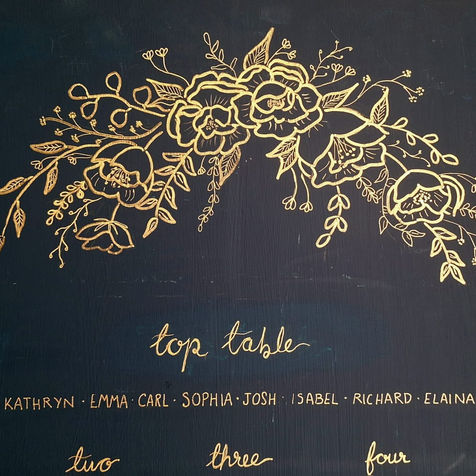 top table
KATHRYN · EMMA · CARL · SOPHIA · JOSH · ISABEL · RICHARD · ELAINA
two three four